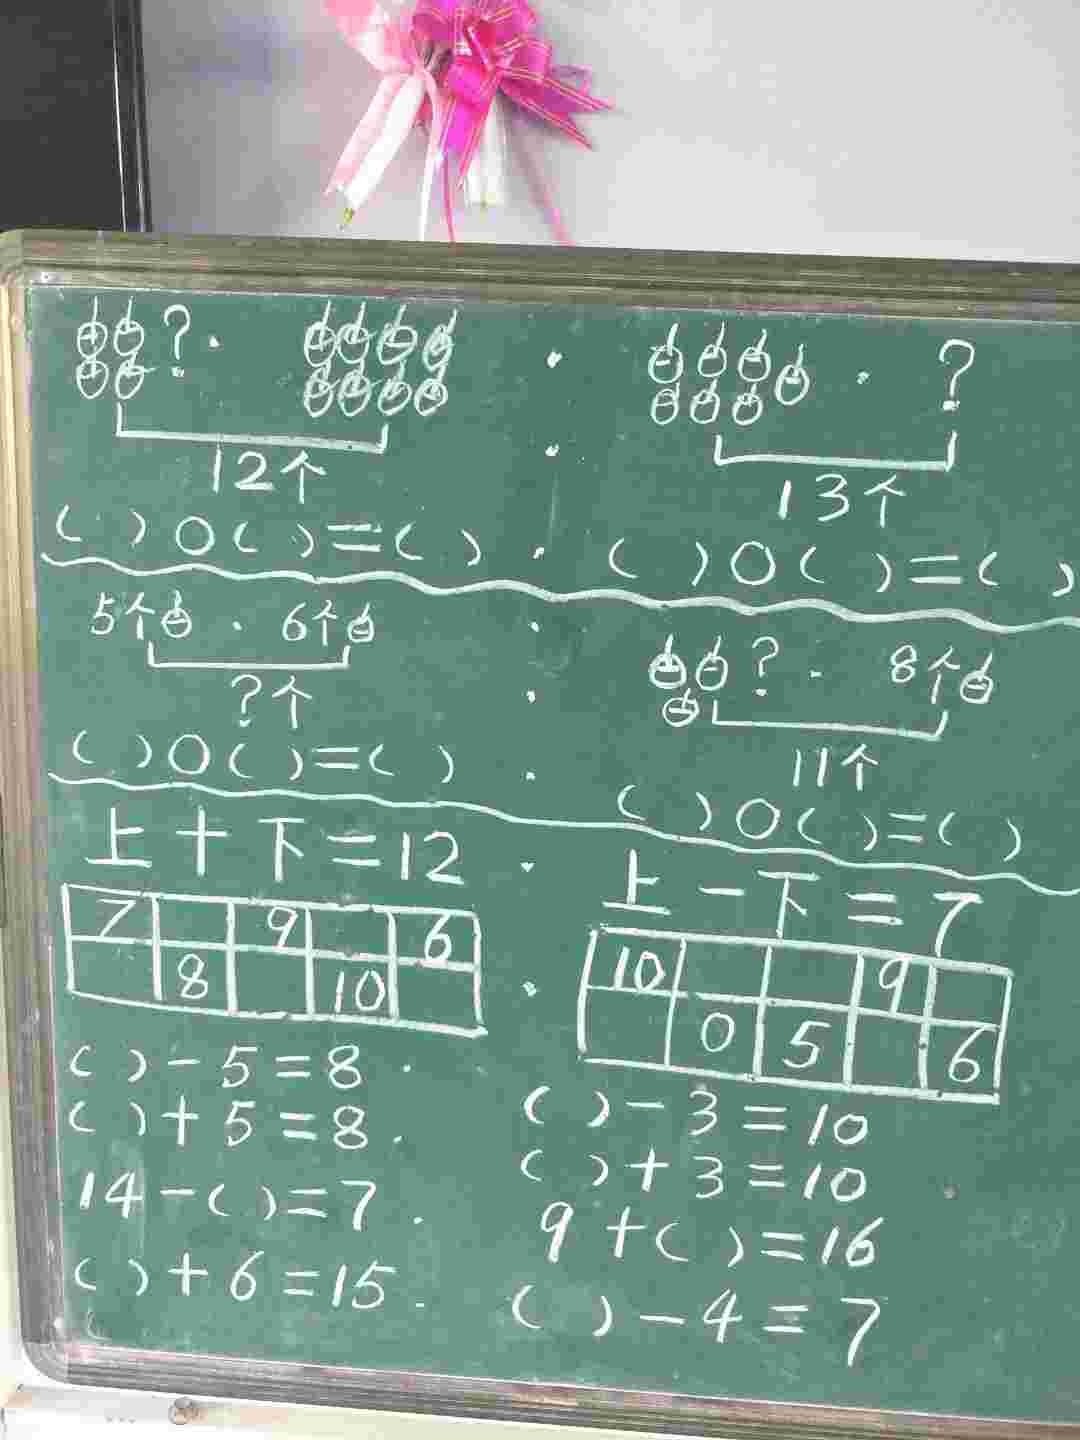 ? .
12个
( ) ○ ( ) = ( )
. ?
13个
( ) ○ ( ) = ( )
5个 . 6个
? 个
( ) ○ ( ) = ( )
? . 8个
11个
( ) ○ ( ) = ( )
上 + 下 = 12
7 9 6
8 10
上 - 下 = 7
10 9
0 5 6
( ) - 5 = 8
( ) + 5 = 8
14 - ( ) = 7
( ) + 6 = 15
( ) - 3 = 10
( ) + 3 = 10
9 + ( ) = 16
( ) - 4 = 7